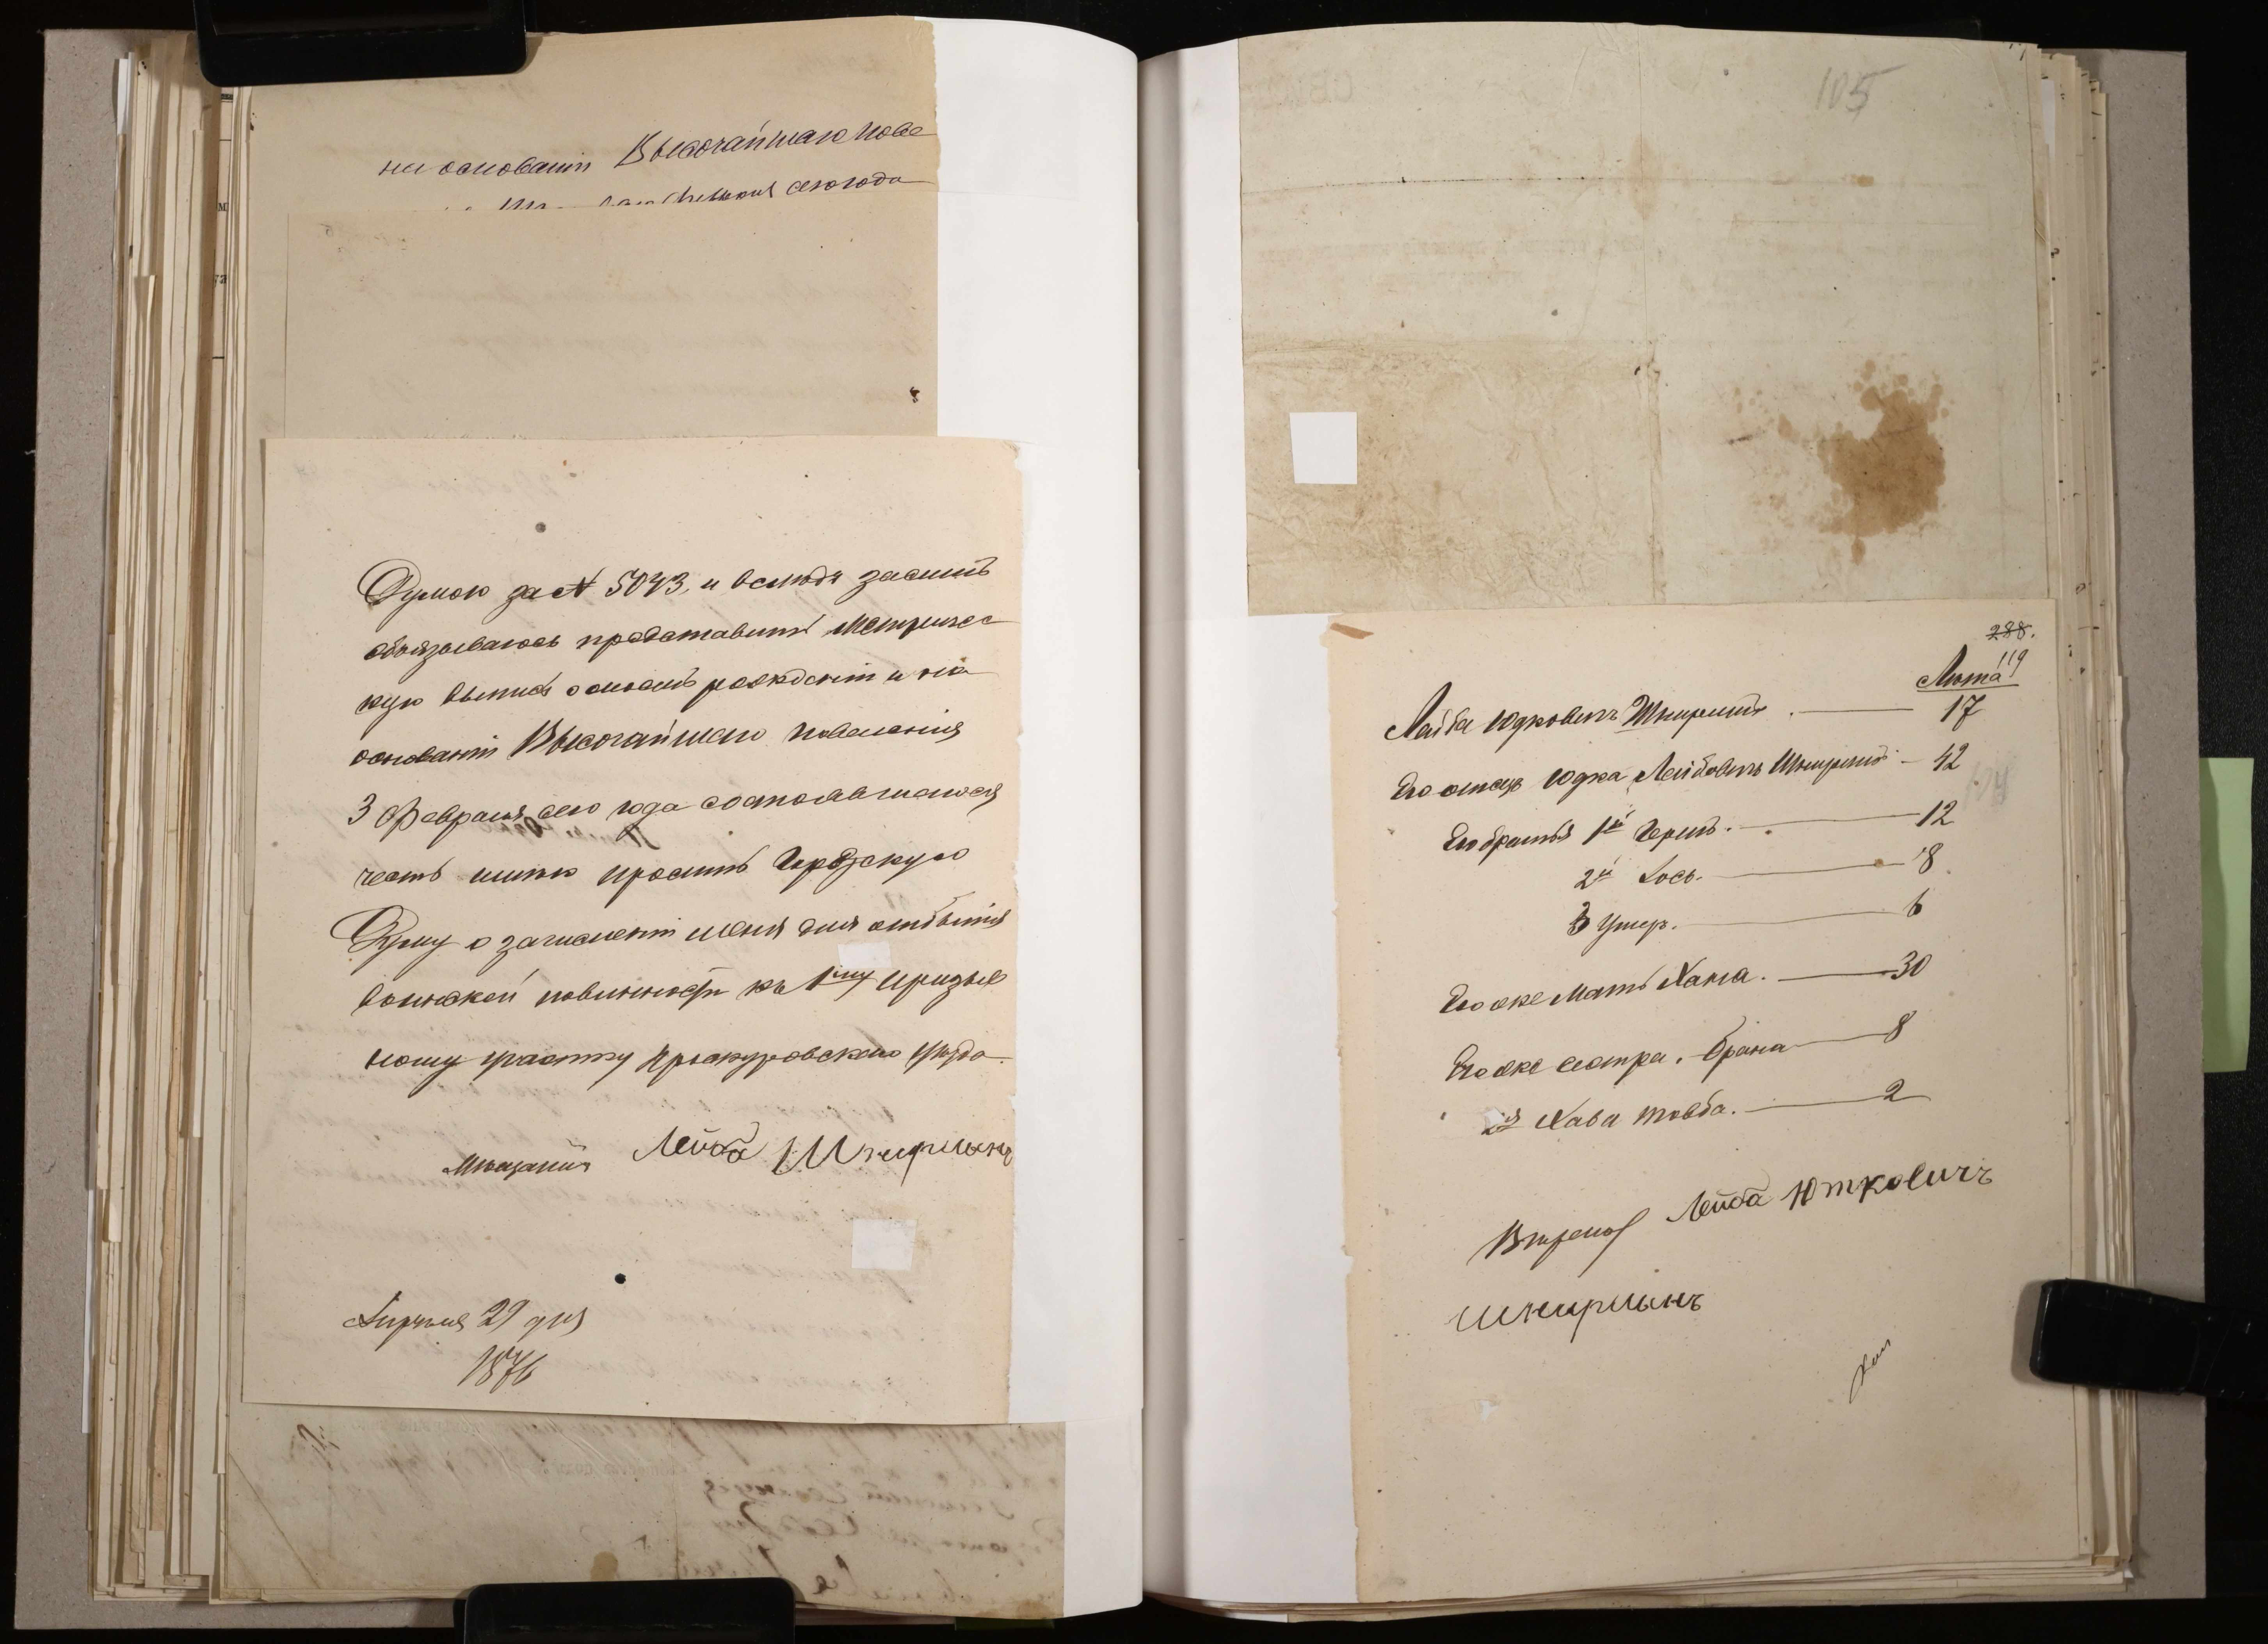 на основаніи Высочайшаго пове
сего года
Думою за № 5043, и вслѣдъ засимъ
обязываюсь представить метричес
кую выпись о моемъ рожденіи и на
основаніи Высочайшаго повеленія
3 Февраля сего года состоявшагося
честь имѣю просить Городскую
Думу о зачисленіи меня для отбытія
воинской повинности къ 1му призыв
ному участку Проскуровскаго уѣзда.
Мѣщанинъ Лейба Шнирманъ
Апрѣля 29 дня
1876
105
288.
119
Лѣта
Лейба Юдковичъ Шнирманъ . 17
Его отецъ Юдка Лейбовичъ Шнирманъ - 42
Его братья 1й Гершъ. 12
2й Іось. 8
3 Ушеръ. 6
Его же мать Хана. 30
Его же сестра. Брана 8
2я Хава Товба. 2
Лейба Юткович
Шнирманъ